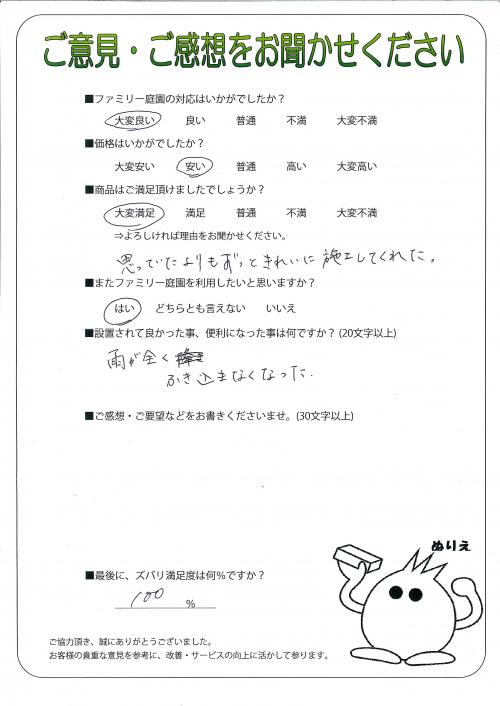 ご意見・ご感想をお聞かせください
■ファミリー庭園の対応はいかがでしたか？
大変良い 良い 普通 不満 大変不満
■価格はいかがでしたか？
大変安い 安い 普通 高い 大変高い
■商品はご満足頂けましたでしょうか？
大変満足 満足 普通 不満 大変不満
⇒よろしければ理由をお聞かせください。
思っていたよりもずっときれいに施工してくれた。
■またファミリー庭園を利用したいと思いますか？
はい どちらとも言えない いいえ
■設置されて良かった事、便利になった事は何ですか？(20文字以上)
雨が全く
ふき込まなくなった.
■ご感想・ご要望などをお書きくださいませ。(30文字以上)
ぬりえ
■最後に、ズバリ満足度は何％ですか？
100 %
ご協力頂き、誠にありがとうございました。
お客様の貴重な意見を参考に、改善・サービスの向上に活かして参ります。